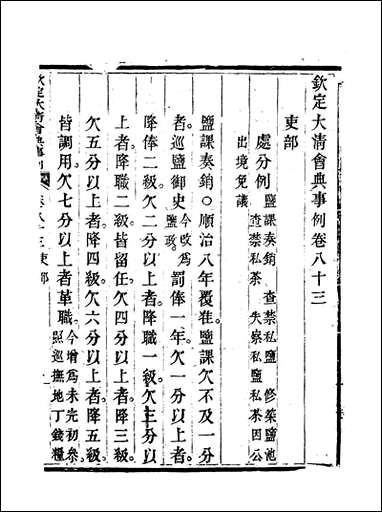 欽定大清會典事例卷八十三
吏部
處分例 鹽課奏銷 查禁私鹽 修築鹽池
查禁私茶 失察私鹽私茶因公
出境免議
鹽課奏銷○順治八年覆准。鹽課欠不及一分
者。巡鹽御史今改爲鹽政。罰俸一年。欠一分以上者。
降俸二級。欠二分以上者。降職一級。欠三分以
上者。降職二級。皆留任。欠四分以上者。降三級。
欠五分以上者。降四級。欠六分以上者。降五級。
皆調用。欠七分以上者。革職。今增爲未完初參。照巡撫地丁錢糧
欽定大清會典事例 卷八十三 吏部 一